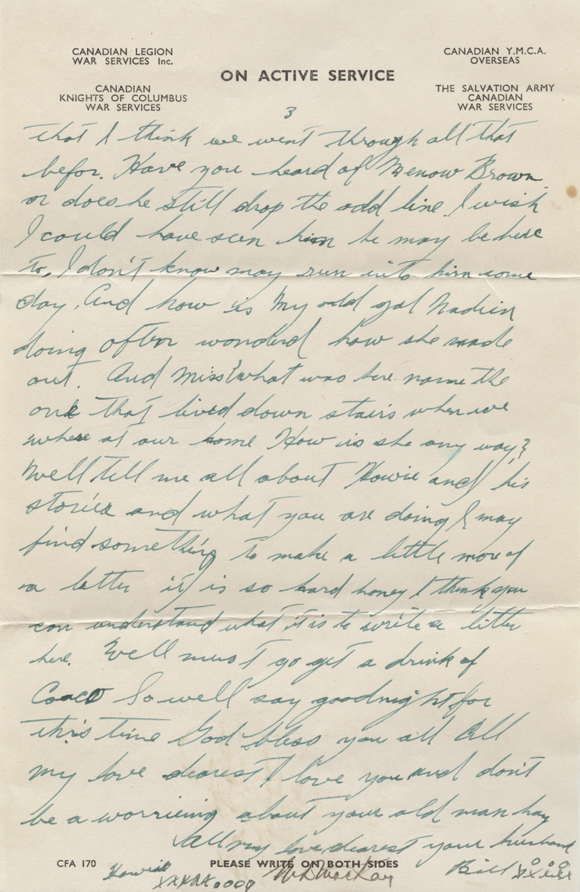 CANADIAN LEGION
WAR SERVICES Inc.
CANADIAN
KNIGHTS OF COLUMBUS
WAR SERVICES
ON ACTIVE SERVICE
CANADIAN Y.M.C.A.
OVERSEAS
THE SALVATION ARMY
CANADIAN
WAR SERVICES
3
that I think we went through all that
befor. Have you heard of Menow Brown
or does he still drop the odd line I wish
I could have seen him he may be here
to, I don't know may run into him some
day. And how is my odd gal Nadien
doing often wonderd how she made
out. And Miss? what was her name the
one that lived down stairs when we
where at our home How is she any way?
Well tell me all about Howie and his
stories and what you are doing I may
find something to make a little more of
a letter it is so hard honey I think you
can understand what it is to write a letter
here. Well must go get a drink of
Coaco So well say goodnight for
this time God bless you all All
my love dearest I love you and don't
be a worrieing about your old man hay
All my love dearest your husband
Bill
Howie
W D MacKay
CFA 170
PLEASE WRITE ON BOTH SIDES